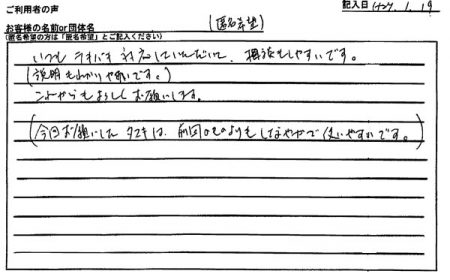 ご利用者の声
記入日 H27. 1. 19
お客様の名前or団体名
(匿名希望)
(匿名希望の方は「匿名希望」とご記入ください)
いつも テキパキ 対応していただいて、相談もしやすいです。
(説明もわかりや明いです。)
これからもよろしくお願いします。
(今回お願いした タスキは、前回のものよりもしなやかで使いやすいです。)